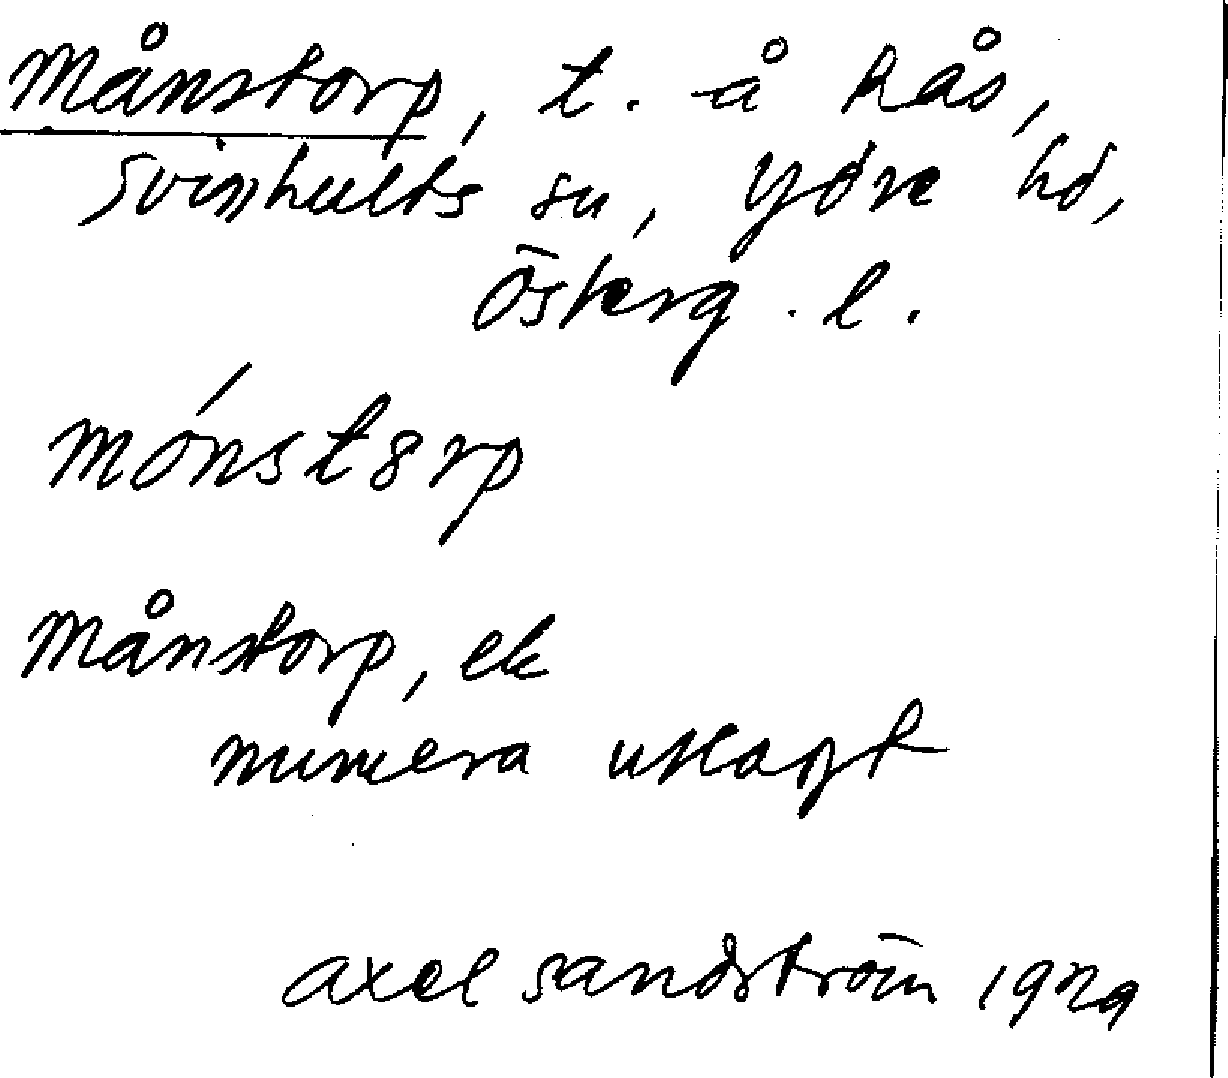 Månstorp, t. å Rås,
Svinhults sn, Ydre hd,
Österg. l.
mónstorp
Månstorp, ek
numera utlagt
Axel Sandström 1929